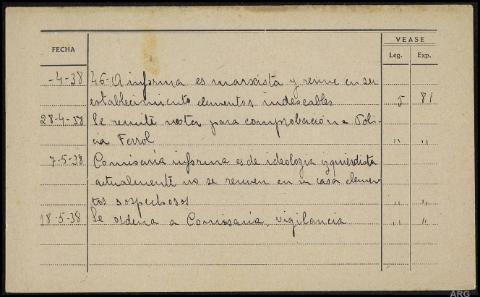 VEASE
FECHA Leg. Exp.
-4-38 46-A informa es marxista y reune en su
establecimiento elementos indeseables 5 81
28-4-38 Se remite nota para comprobación a Poli-
cia Ferrol " "
7-5-38 Comisaría informa es de ideologia izquierdista
actualmente no se reunen en su casa elemen-
tos sospechosos " "
18-5-38 Se ordena a Comisaria, vigilancia " "
ARG